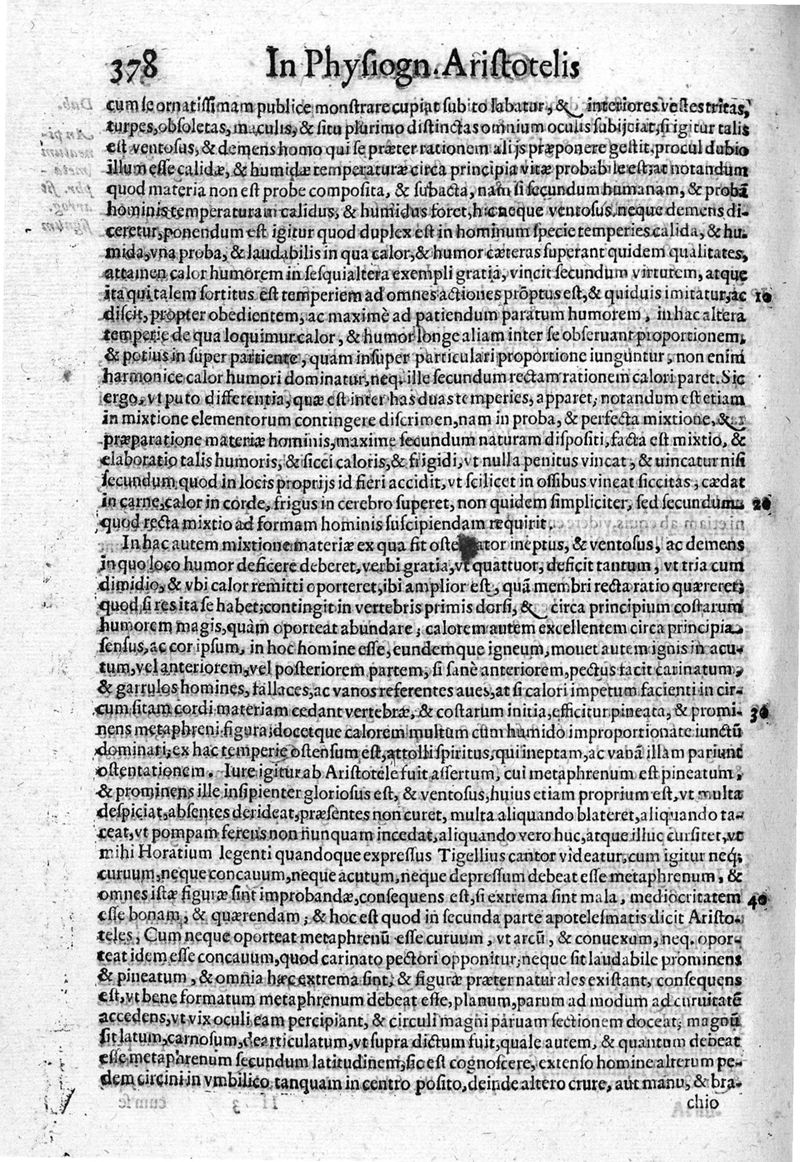 378 In Physiogn. Aristotelis
cum se ornatissimam publice monstrare cupiat subito labatur, & interiores vestes tritas,
turpes, obsoletas, maculis, & situ plurimo distinctas omnium oculis subijciat, si igitur talis
est ventosus, & demens homo qui se præter rationem alijs præponere gestit, procul dubio
illum esse calidæ, & humidæ temperaturæ circa principia vitæ probabile est; ac notandum
quod materia non est probe composita, & subacta, nam si secundum humanam, & probã
hominis temperaturam calidus, & humidus foret, hic neque ventosus, neque demens di-
ceretur, ponendum est igitur quod duplex est in hominum specie temperies calida, & hu-
mida, vna proba, & laudabilis in qua calor, & humor cæteras superant quidem qualitates,
attamen calor humorem in sesquialtera exempli gratia, vincit secundum virturem, atque
ita qui talem sortitus est temperiem ad omnes actiones prõptus est, & quiduis imitatur, ac 10
discit, propter obedientem, ac maximè ad patiendum paratum humorem, in hac altera
temperie de qua loquimur calor, & humor longe aliam inter se obseruant proportionem,
& potius in super partiente, quam insuper particulari proportione iunguntur, non enim
harmonice calor humori dominatur, neq. ille secundum rectam rationem calori paret. Sic
ergo, vt puto differentia, quæ est inter has duas temperies, apparet, notandum est etiam
in mixtione elementorum contingere discrimen, nam in proba, & perfecta mixtione, &
præparatione materiæ hominis, maxime secundum naturam dispositi, facta est mixtio, &
elaboratio talis humoris, & sicci caloris, & frigidi, vt nulla penitus vincat, & uincatur nisi
secundum quod in locis proprijs id fieri accidit, vt scilicet in ossibus vincat siccitas, cædat
in carne, calor in corde, frigus in cerebro superet, non quidem simpliciter, sed secundum 20
quod recta mixtio ad formam hominis suscipiendam requirit.
In hac autem mixtione materiæ ex qua fit ostentator ineptus, & ventosus, ac demens
in quo loco humor deficere deberet, verbi gratia, vt quattuor, deficit tantum, vt tria cum
dimidio, & vbi calor remitti oporteret, ibi amplior est, quã membri recta ratio quæreret;
quod si res ita se habet; contingit in vertebris primis dorsi, & circa principium costarum
humorem magis, quàm oporteat abundare; calorem autem excellentem circa principia
sensus, ac cor ipsum, in hoc homine esse, eundemque igneum, mouet autem ignis in acu-
tum, vel anteriorem, vel posteriorem partem, si sanè anteriorem, pectus facit carinatum,
& garrulos homines, fallaces, ac vanos referentes aues, at si calori impetum facienti in cir-
cum sitam cordi materiam cedant vertebræ, & costarum initia, efficitur pineata, & promi- 30
nens metaphreni figura; docetque calorem multum cum humido improportionate iunctũ
dominari, ex hac temperie ostensum est, attolli spiritus, qui ineptam, ac vanã illam pariunt
ostentationem. Iure igitur ab Aristotele fuit assertum, cui metaphrenum est pineatum,
& prominens ille insipienter gloriosus est, & ventosus, huius etiam proprium est, vt multa
despiciat, absentes derideat, præsentes non curet, multa aliquando blateret, aliquando ta-
ceat, vt pompam ferens non nunquam incedat, aliquando vero huc, atque illuc cursitet, vt
mihi Horatium legenti quandoque expressus Tigellius cantor videatur, cum igitur neq;
curuum, neque concauum, neque acutum, neque depressum debeat esse metaphrenum, &
omnes istæ figuræ sint improbandæ, consequens est, si extrema sint mala, mediocritatem 40
esse bonam, & quærendam; & hoc est quod in secunda parte apotelesmatis dicit Aristo-
teles, Cum neque oporteat metaphrenũ esse curuum, vt arcũ, & conuexum, neq. opor-
teat idem esse concauum, quod carinato pectori opponitur; neque sit laudabile prominens
& pineatum, & omnia hæc extrema sint, & figuræ præter naturales existant, consequens
est, vt bene formatum metaphrenum debeat esse, planum, parum ad modum ad curuitatẽ
accedens, vt vix oculi eam percipiant, & circuli magni paruam sectionem doceat, magnũ
sit latum, carnosum, dearticulatum, vt supra dictum fuit, quale autem, & quantum debeat
esse metaphrenum secundum latitudinem, sic est cognoscere, extenso homine alterum pe-
dem circini in vmbilico tanquam in centro posito, deinde altero crure, aut manu, & bra-
chio